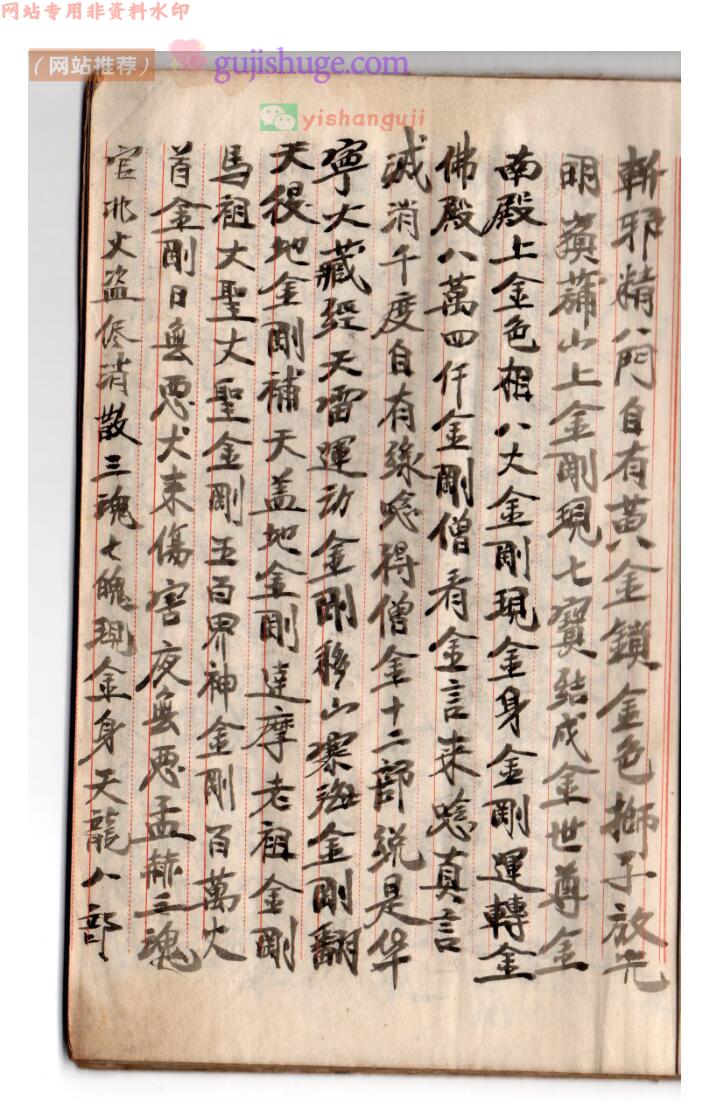 网站专用非资料水印
（网站推荐）
gujishuge.com
yishanguji
斬邪精八門自有黃金鎖金色獅子放光
明 山上金剛現七寶結成金世尊金
南殿上金色相八大金剛現金身金剛運轉金
佛殿八萬四仟金剛僧看金言来唸真言
誠消千度自有缘唸得僧金十二部説是华
寧大藏經天雷運动金剛移山 海金剛翻
天 地金剛補天盖地金剛達摩老祖金剛
馬祖大聖大聖金剛五百界神金剛百萬火
首金剛日無恶犬来傷害夜無恶孟赫三魂
官 火盗 消散三魂七魄現金身天龍八部